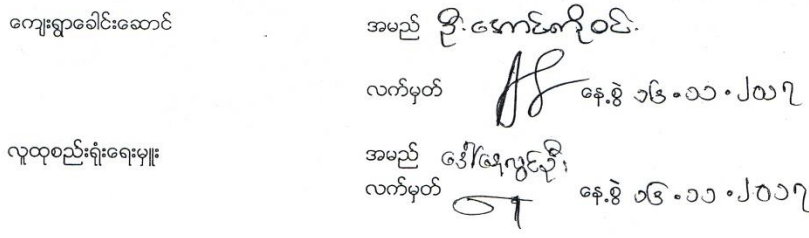 ကျေးရွာခေါင်းဆောင် အမည် ဦးအောင်ကိုဝင်း
လက်မှတ် နေ့စွဲ ၁၆.၁၁.၂၀၁၇
လူထုစည်းရုံးရေးမှူး အမည် ဒေါ်
လက်မှတ် နေ့စွဲ ၁၆.၁၁.၂၀၁၇